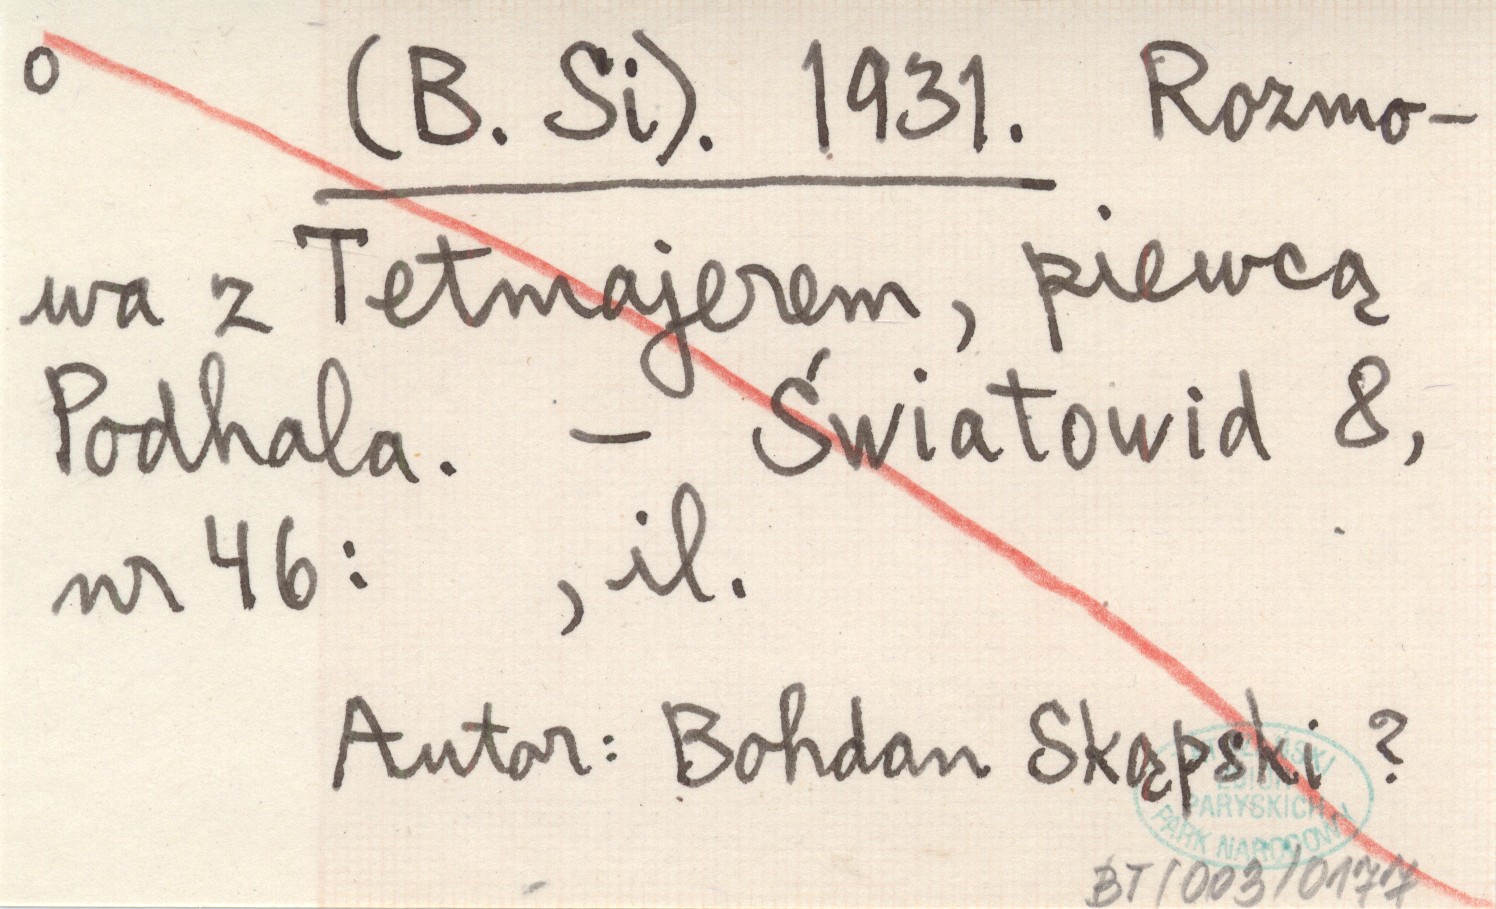 o (B. Si). 1931. Rozmo-
wa z Tetmajerem, piewcą
Podhala. — Światowid 8,
nr 46: , il.
Autor: Bohdan Skąpski?
PARYSKICH
PARK NARODOWY
BT/003/0177